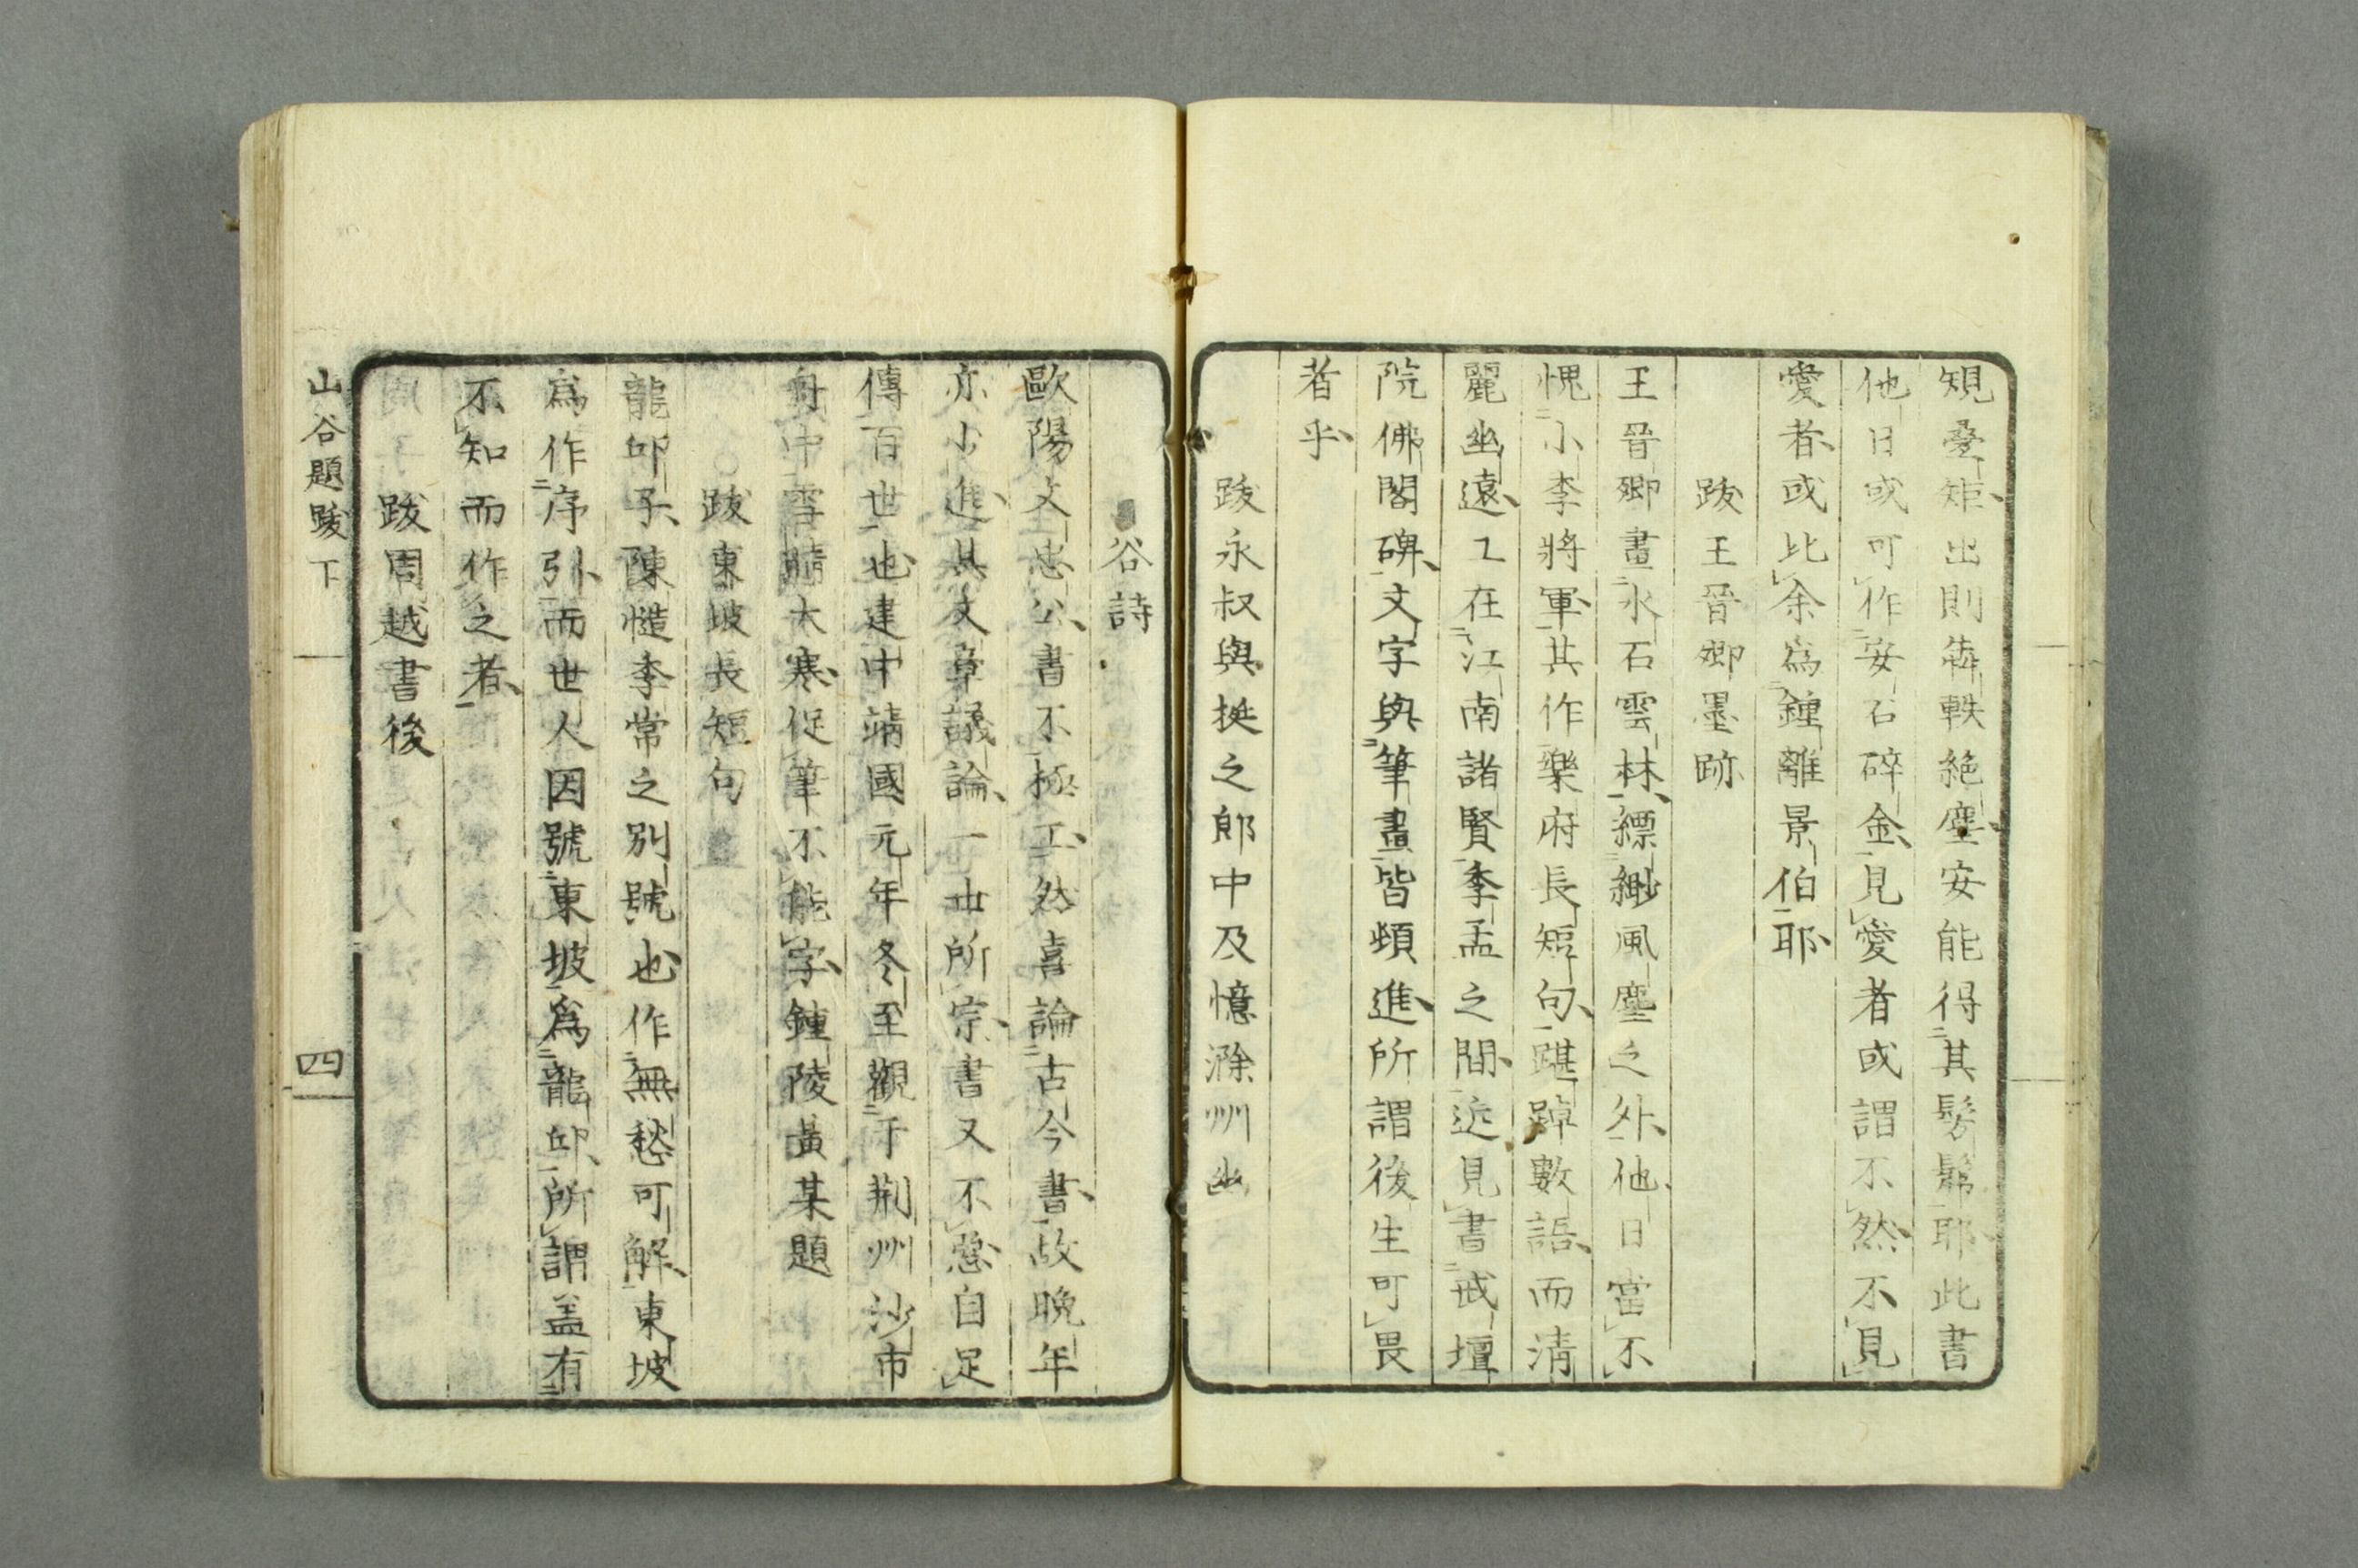 規疊矩出則犇軼絶塵安能得其髣髴耶此書
他日或可作安石碎金見愛者或謂不然不見
愛者或比余爲鍾離景伯耶
跋王晉卿墨跡
王晉卿畫水石雲林縹緲風塵之外他日當不
愧小李將軍其作樂府長短句踸踔數語而清
麗幽遠工在江南諸賢季孟之間近見書戒壇
院佛閣碑文字與筆畫皆頻進所謂後生可畏
者乎
跋永叔與挺之郎中及憶滁州幽
谷詩
歐陽文忠公書不極工然喜論古今書故晩年
亦少進其文章議論一世所宗書又不惡自足
傳百世也建中靖國元年冬至觀于荆州沙市
舟中雪晴大寒促筆不能字鍾陵黄某題
跋東坡長短句
龍邱子陳慥季常之別號也作無愁可解東坡
爲作序引而世人因號東坡爲龍邱所謂盖有
不知而作之者
跋周越書後
山谷題跋下
四